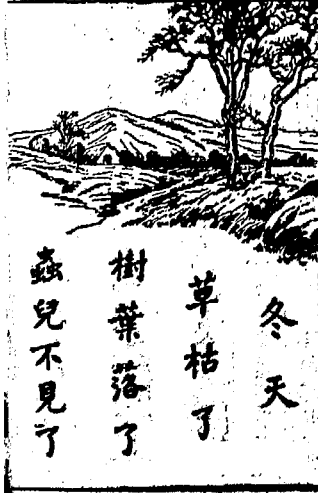 冬天
草枯了
樹葉落了
蟲兒不見了